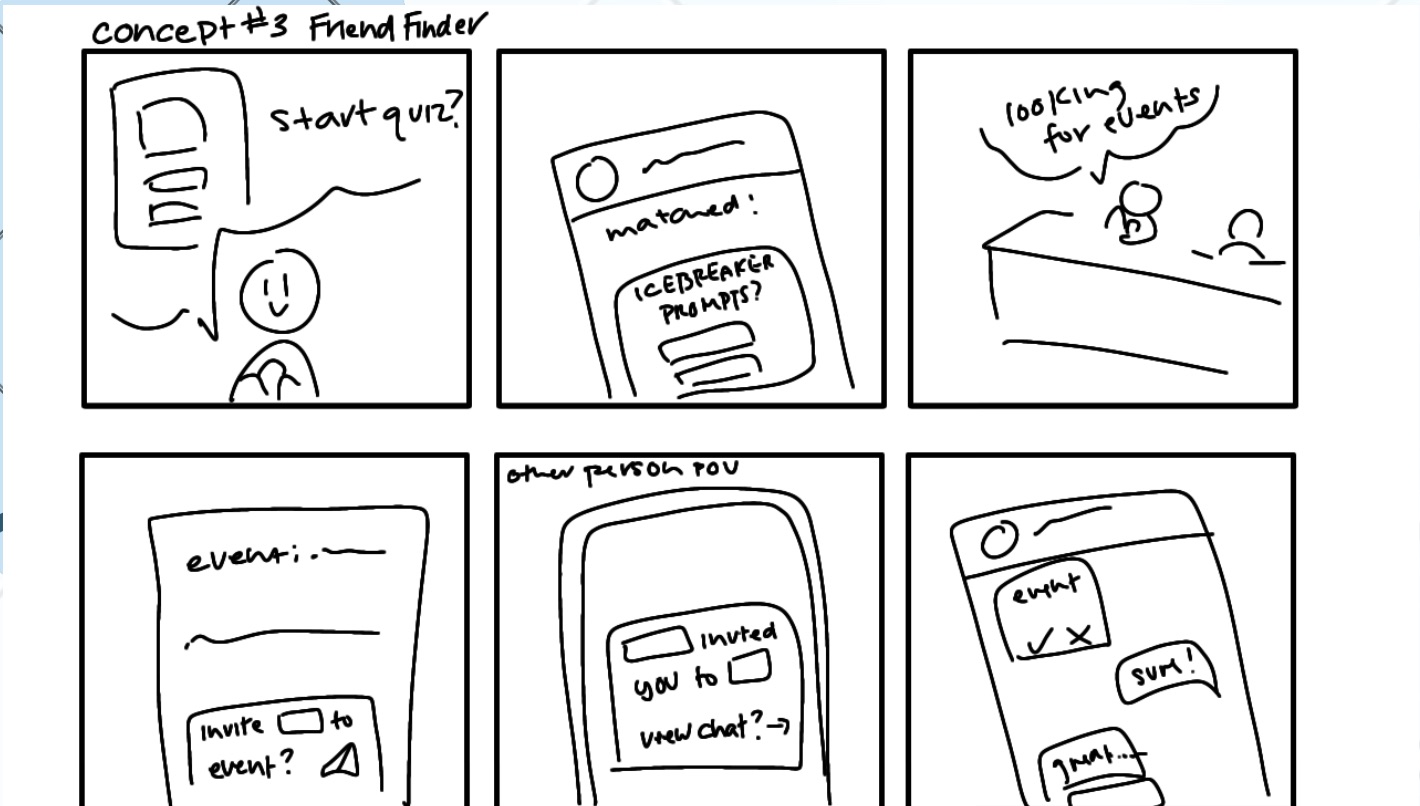 concept #3 Friend Finder
start quiz?
matched!
ICEBREAKER
PROMPTS?
looking
for events
event:
invite to
event?
other person POV
invited
you to
view chat? →
event
✓ X
sure!
great...